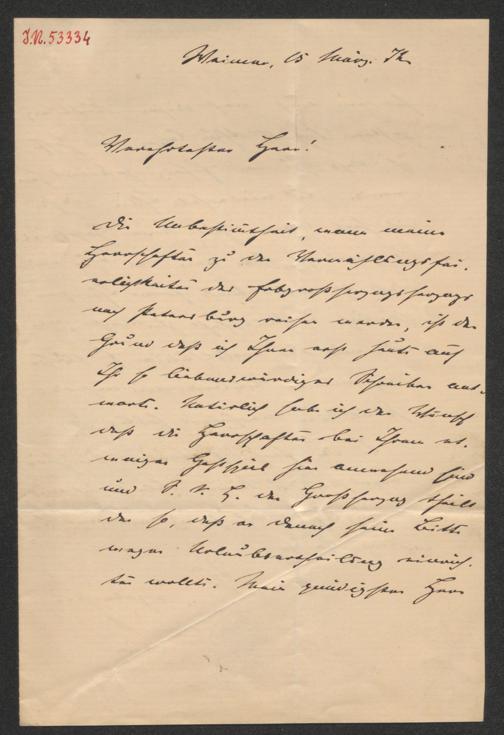 J.N. 53334
Weimar, 15 März. 74
Verehrtester Herr!
Die Unbestimtheit, wann meine
Herrschaften zu den Vermählungsfei-
erlichkeiten des
nach Petersburg reisen werden, ist der
Grund daß ich Ihnen erst heute auf
Ihr so liebenswürdiges Schreiben ant-
worte. Natürlich habe ich den Wunsch
daß die Herrschaften bei Ihrem et-
waigen Gastspiel hier anwesend sind
und S. K. H. der Großherzog theilt
das so, daß er danach seine Bitte
wegen Urlaubsertheilung einrich-
ten wollte. Mein gnädigster Herr